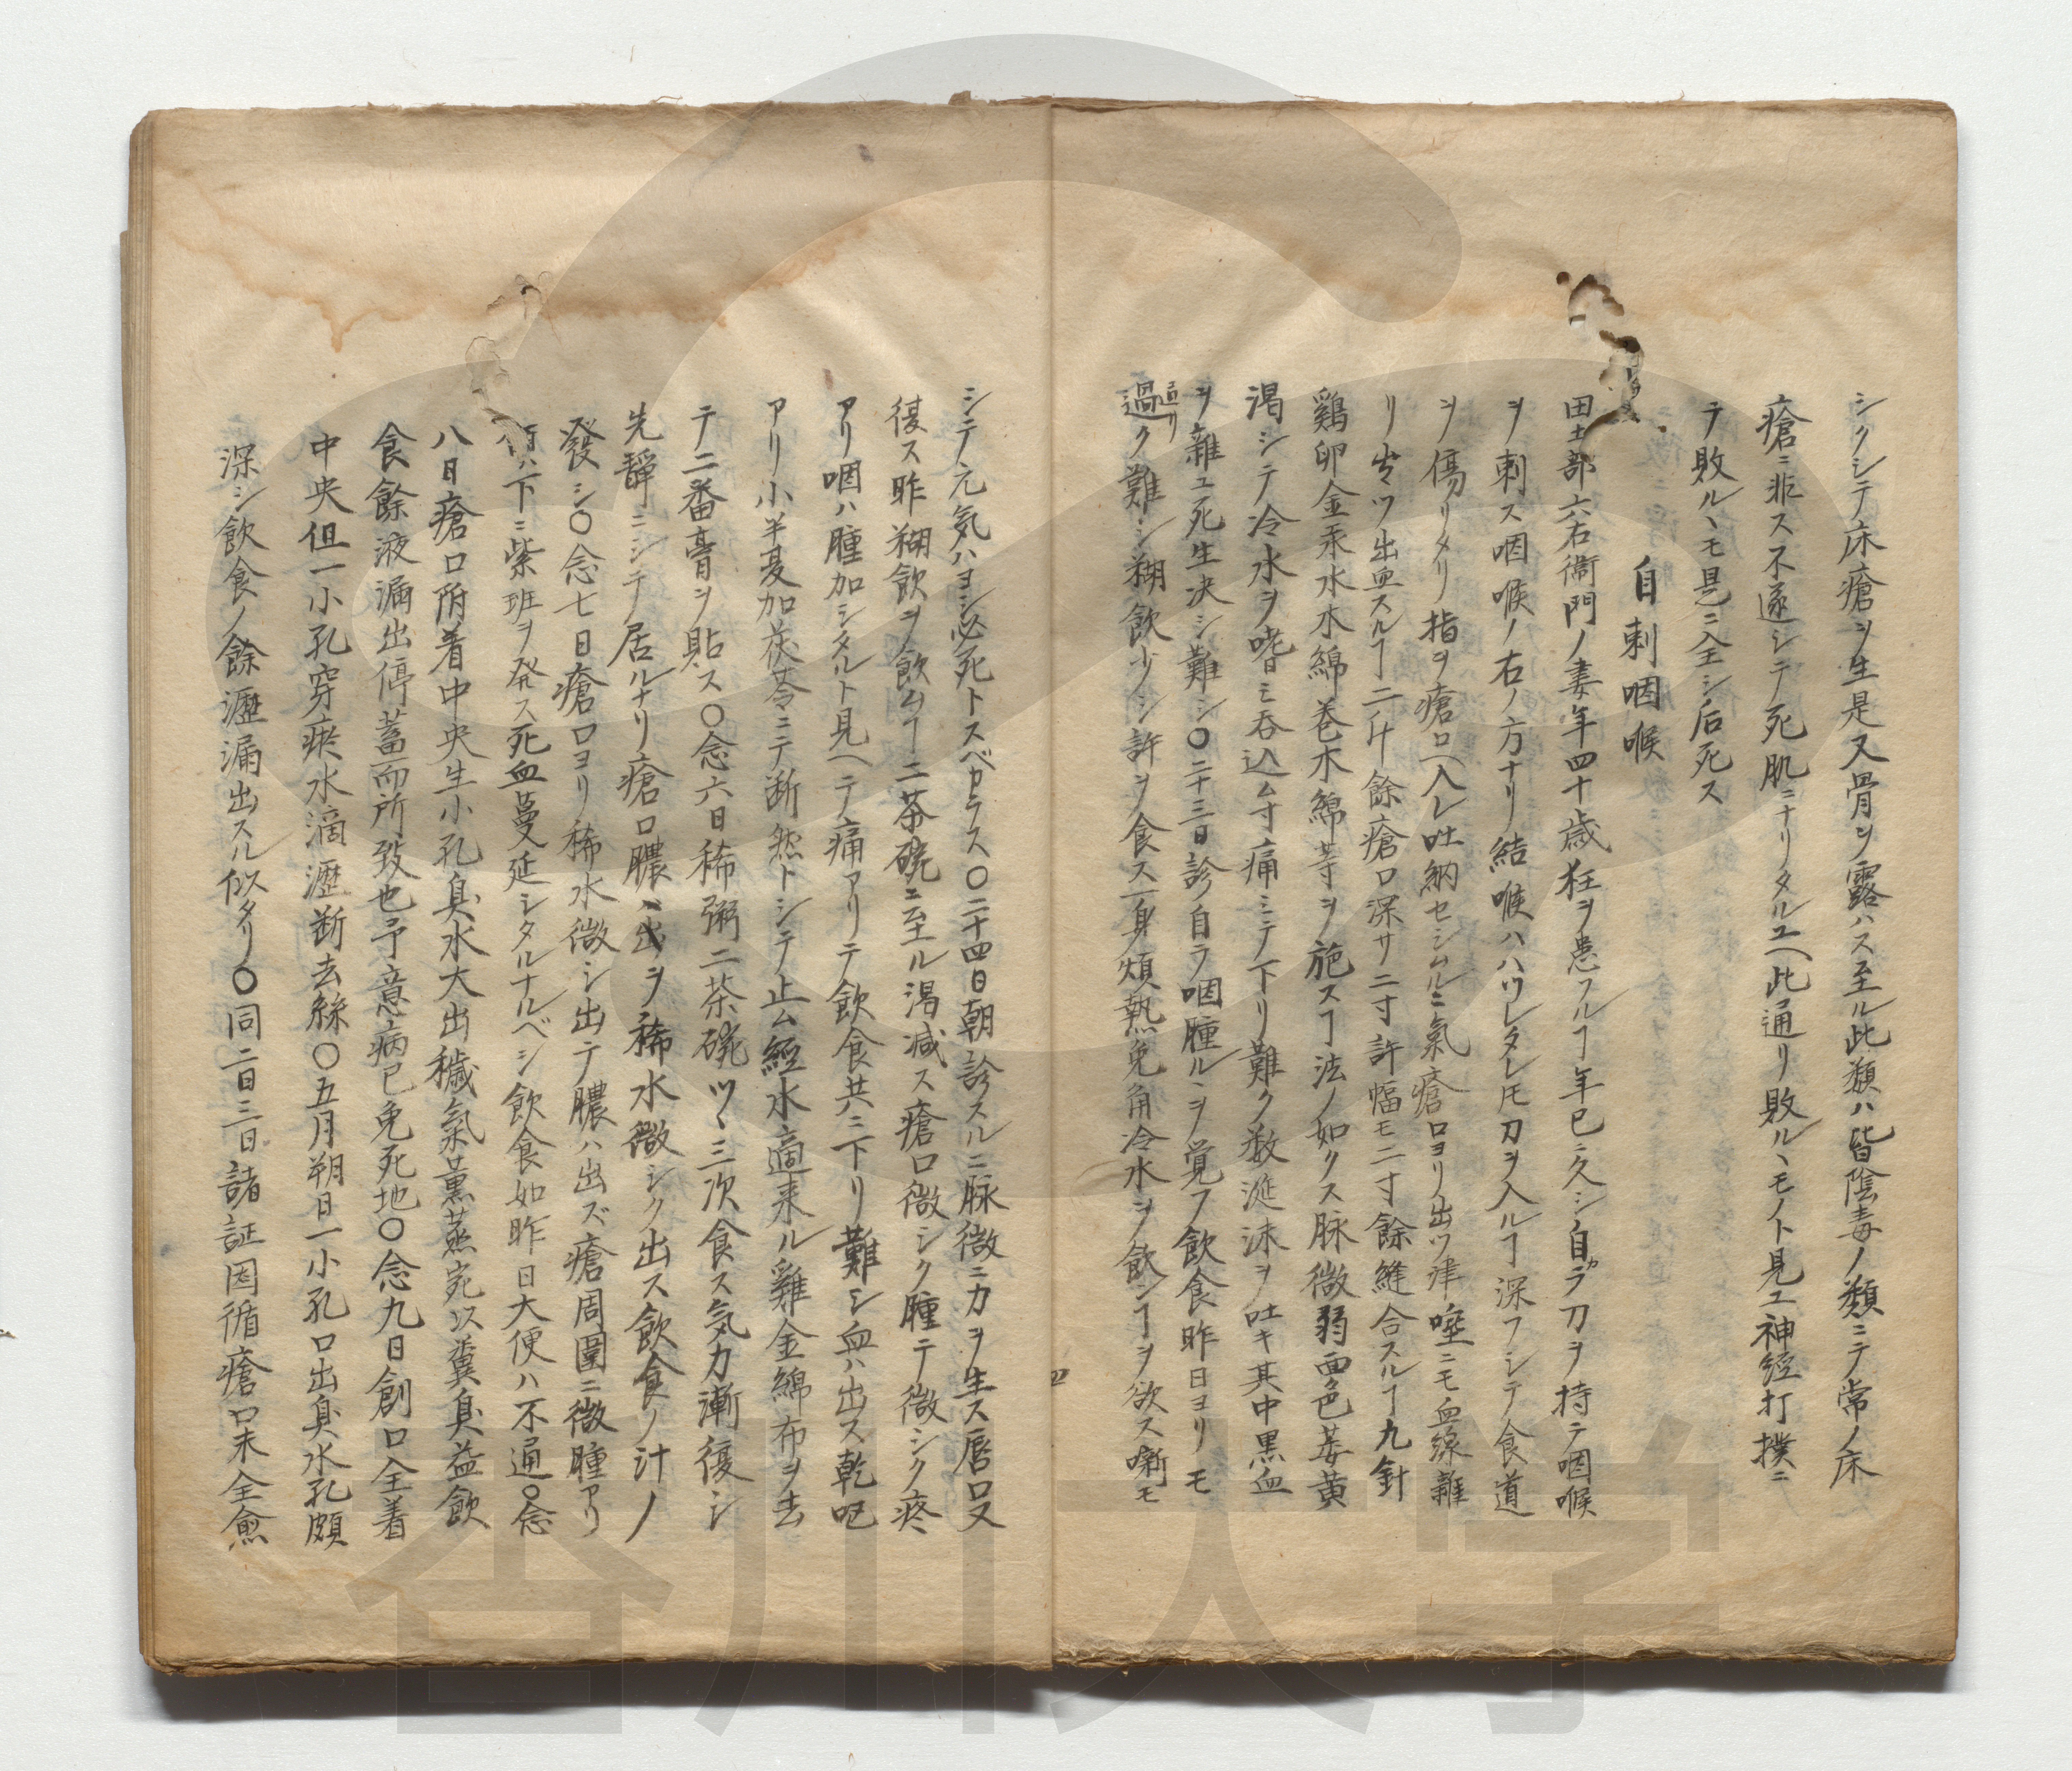 シクシテ床瘡ヲ生是又骨ヲ露ハス至ル此類ハ皆陰毒ノ類ニテ常ノ床
瘡ニ非ス不遂シテ死肌ニナリタルユヘ此通リ敗ルヽモノト見ユ神経打撲ニ
テ敗ルヽモ是ニ全シ后死ス
自刺咽喉
田土部六右衛門ノ妻年四十歳狂ヲ患フルヿ年已ニ久シ自ラ刀ヲ持テ咽喉
ヲ刺ス咽喉ノ右ノ方ナリ結喉ハハツレタレ𪜈刀ヲ入ルヿ深フシテ食道
ヲ傷リタリ指ヲ瘡口ヘ入レ吐納セシムルニ氣瘡口ヨリ出ツ津唾ニモ血線雜
リ出ツ出血スルヿ二升餘瘡口深サ二寸許幅モ二寸餘縫合スルヿ九針
鶏卵金汞水木綿巻木綿等ヲ施スヿ法ノ如クス脉微弱面色萎黄
渇シテ冷水ヲ嗜モ呑込ム寸痛ミテ下リ難ク数涎沫ヲ吐キ其中黒血
ヲ雜ユ死生决シ難シ〇二十三日診自ラ咽腫ルヽヲ覚フ飲食昨日ヨリモ
過ク難シ糊飲少シ許ヲ食ス一身煩熱兔角冷水ヲ飲ンヿヲ欲ス嘶モ
シテ元気ハヨシ必死トスベカラス〇二十四日朝診スルニ脉微ニカヲ生ス唇口又
復ス昨糊飲ヲ飲ムヿ二茶碗ニ至ル渇减ス瘡口微シク腫テ微シク疼
アリ咽ハ腫加シタルト見ヘテ痛アリテ飲食共ニ下リ難シ血ハ出ス乾呕
アリ小半夏加茯苓ニテ断然トシテ止ム經水適来ル雞金綿布ヲ去
テ二番膏ヲ貼ス〇念六日稀粥二茶碗ツヽ三次食ス気力漸復シ
先静ニシテ居ルナリ瘡口膿ヽ出ヲ稀水微シク出ス飲食ノ汁ノ
發シ〇念七日瘡口ヨリ稀水微シ出テ膿ハ出ズ瘡周圍ニ微腫アリ
下ニ紫班ヲ発ス死血蔓延シタルナルベシ飲食如昨日大便ハ不通〇念
八日瘡口附着中央生小孔臭水大出穢氣薫蒸宛以糞臭益飲
食餘液漏出停蓄而所致也予意病已免死地〇念九日創口全着
中央但一小孔穿瘀水滴瀝断去絲〇五月朔日一小孔口出臭水孔頗
深シ飲食ノ餘瀝漏出スル似タリ〇同二日三日諸証因循瘡口未全愈